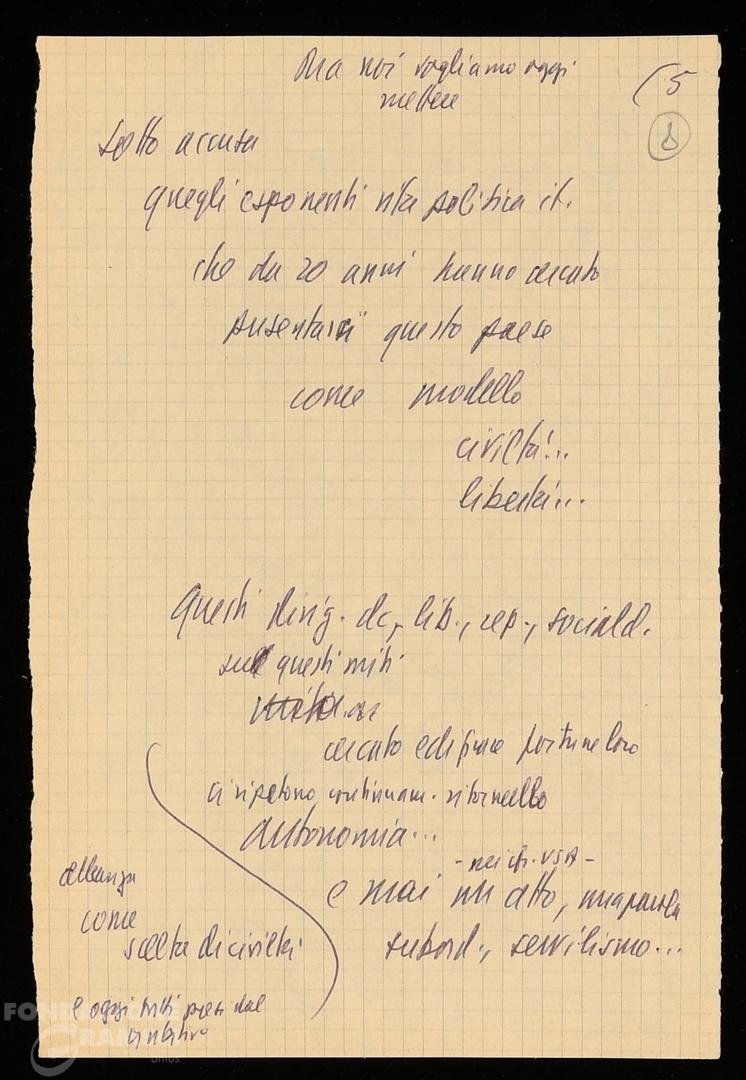 Ma noi vogliamo oggi
mettere
(5
8
sotto accusa
quegli esponenti vita politica it.
che da 20 anni hanno cercato
presentarci questo paese
come modello
civiltà!..
libertà!...
Questi dirig. dc, lib., rep., sociald.
su questi miti
cercato edificare fortune loro
ci ripetono continuam. ritornello
autonomia...
- nei cfr. USA -
e mai un atto, una parola
subord., servilismo...
alleanza
come
scelta di civiltà
e oggi tutti presi dal
FONDAZIONE
GRAMSCI
onlus